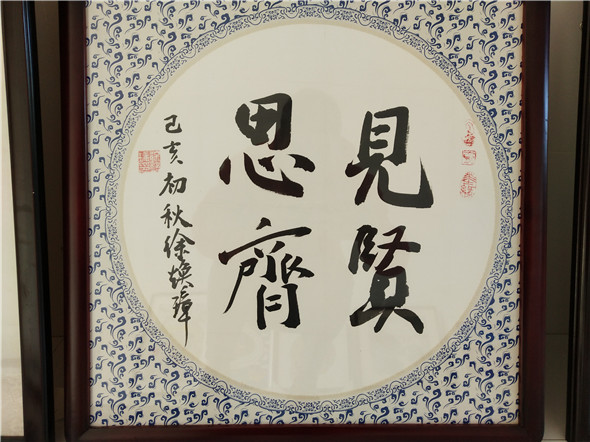 見賢
思齊
己亥初秋徐煥璋